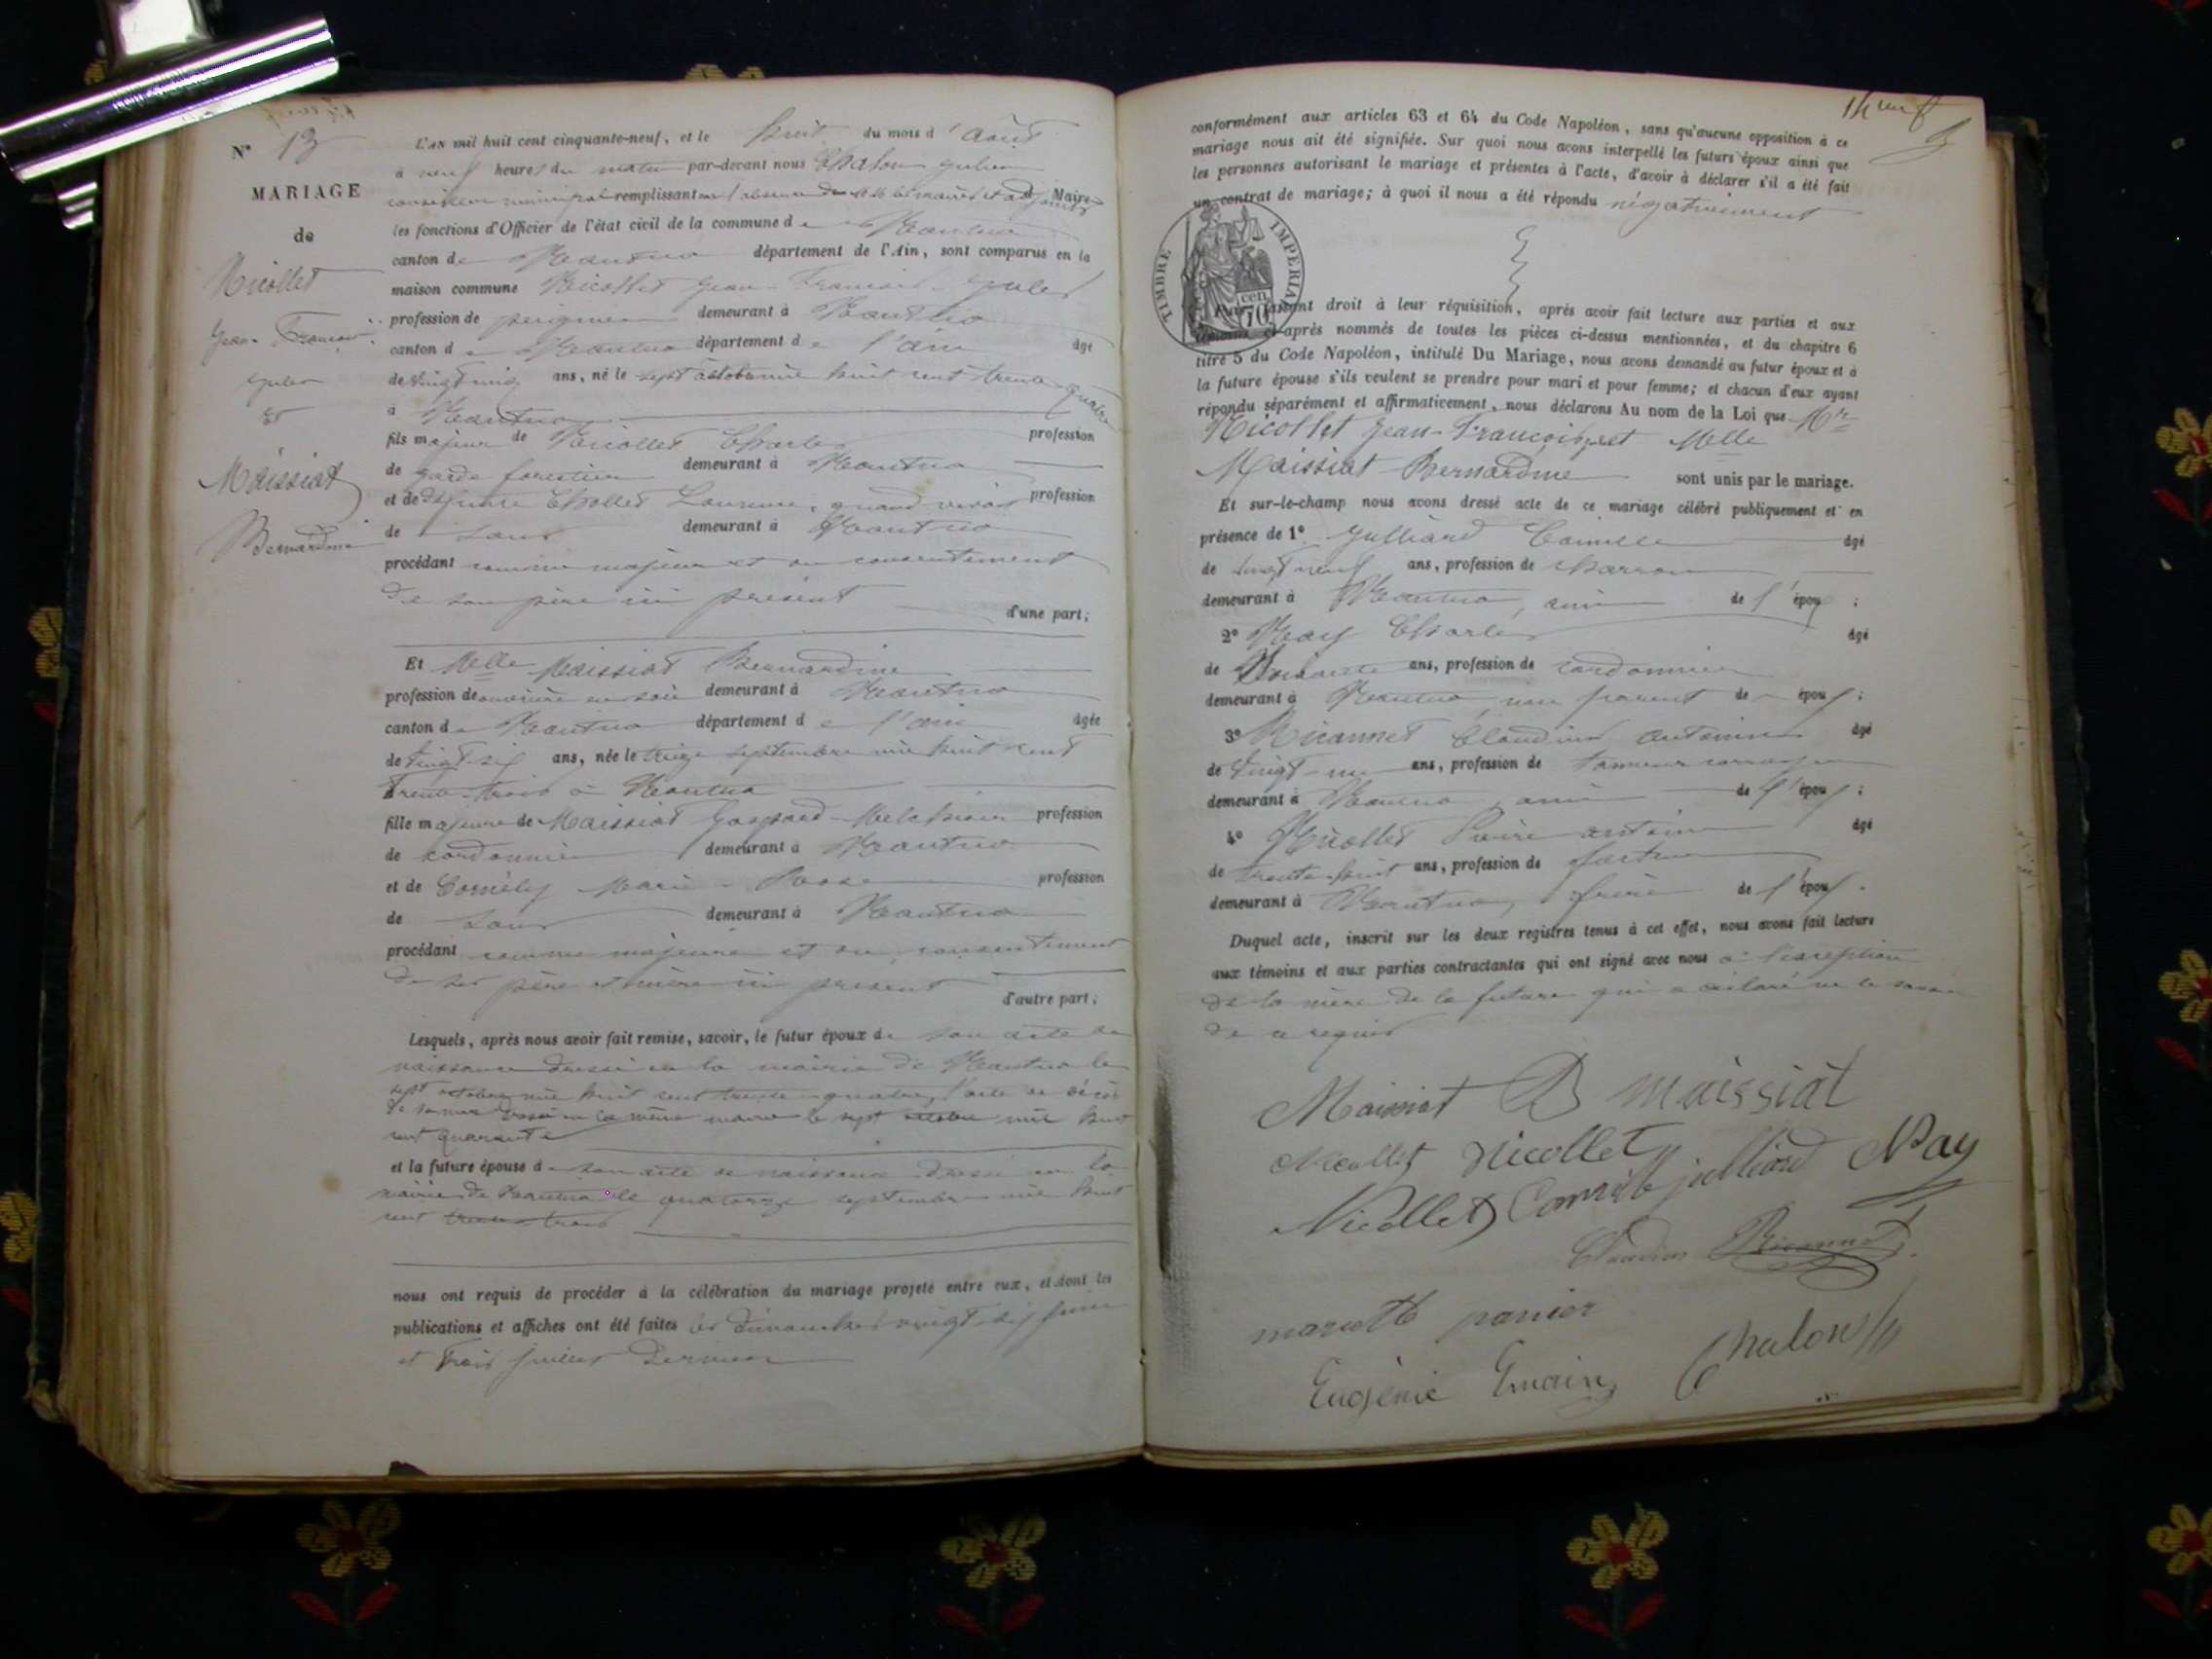 N° 13
MARIAGE
de
Nicollet
Jean François
Jules
et
Maissiat
Bernardine
L'AN mil huit cent cinquante-neuf, et le huit du mois d'août
à neuf heures du matin par-devant nous Chalon Julien
conseiller municipal remplissant en l'absence de maires et adjoints Maire
les fonctions d'Officier de l'état civil de la commune de Nantua
canton de Nantua département de l'Ain, sont comparus en la
maison commune Nicollet Jean-François-Jules
profession de peigneur demeurant à Nantua
canton de Nantua département de l'ain âgé
de vingt ans, né le sept octobre mil huit cent trente quatre
à Nantua
fils majeur de Nicollet Charles profession
de garde forestier demeurant à Nantua
et de défunte Chollet Laurence, quand vivait profession
de sans demeurant à Nantua
procédant comme majeur et du consentement
de son père ici présent
d'une part;
Et Melle Maissiat Bernardine
profession de ouvrière en soie demeurant à Nantua
canton de Nantua département de l'ain âgée
de vingt-six ans, née le treize septembre mil huit cent
trente-trois à Nantua
fille majeure de Maissiat Gaspard-Melchior profession
de cordonnier demeurant à Nantua
et de Marie-Rose profession
de sans demeurant à Nantua
procédant comme majeure et du consentement
de ses père et mère ici présent
d'autre part;
Lesquels, après nous avoir fait remise, savoir, le futur époux de son acte de
naissance dressé en la mairie de Nantua le
sept octobre mil huit cent trente-quatre, l'acte de décès
de sa mère dressé en la même mairie le sept octobre mil huit
cent quarante
et la future épouse de son acte de naissance dressé en la
mairie de Nantua le quatorze septembre mil huit
cent trente-trois
nous ont requis de procéder à la célébration du mariage projeté entre eux, et dont les
publications et affiches ont été faites les dimanches vingt-six juin
et trois juillet derniers
conformément aux articles 63 et 64 du Code Napoléon, sans qu'aucune opposition à ce
mariage nous ait été signifiée. Sur quoi nous avons interpellé les futurs époux ainsi que
les personnes autorisant le mariage et présentes à l'acte, d'avoir à déclarer s'il a été fait
un contrat de mariage; à quoi il nous a été répondu négativement
TIMBRE IMPERIAL
70 cen
faisant droit à leur réquisition, après avoir fait lecture aux parties et aux
témoins ci-après nommés de toutes les pièces ci-dessus mentionnées, et du chapitre 6
titre 5 du Code Napoléon, intitulé Du Mariage, nous avons demandé au futur époux et à
la future épouse s'ils veulent se prendre pour mari et pour femme; et chacun d'eux ayant
répondu séparément et affirmativement, nous déclarons Au nom de la Loi que Mr
Nicollet Jean-François et Melle
Maissiat Bernardine sont unis par le mariage.
Et sur-le-champ nous avons dressé acte de ce mariage célébré publiquement et en
présence de 1° Julliard Camille âgé
de vingt neuf ans, profession de charron
demeurant à Nantua, ami de l'époux;
2° Nay Charles âgé
de ans, profession de cordonnier
demeurant à Nantua, non parent de époux;
3° Ricannet Claudius Antoine âgé
de vingt- ans, profession de tanneur
demeurant à Nantua, ami de l'époux;
4° Nicollet Pierre antoine âgé
de trente-huit ans, profession de facteur
demeurant à Nantua, frère de l'époux.
Duquel acte, inscrit sur les deux registres tenus à cet effet, nous avons fait lecture
aux témoins et aux parties contractantes qui ont signé avec nous à l'exception
de la mère de la future qui a déclaré ne le savoir
de ce requis
Maissiat B maissiat
Nicollet Nicollet
Nicollet Camille julliard Nay
Claudius Ricannet
mariette panier
Eugénie Emain Chalon